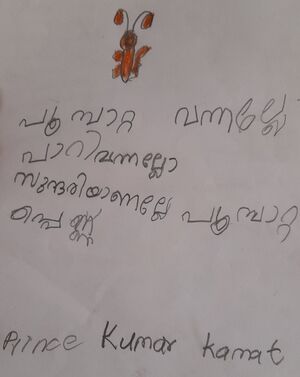 പൂമ്പാറ്റ വന്നല്ലോ
പാറിവന്നല്ലോ
സുന്ദരിയാണല്ലേ പൂമ്പാറ്റ
പെണ്ണ്
Prince Kumar Kamat